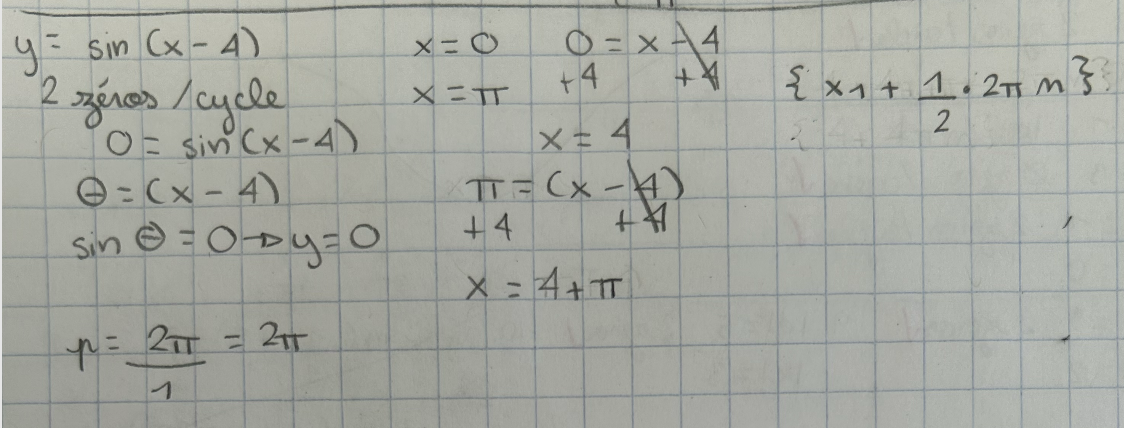 y = sin (x - 4)
2 zéros / cycle
0 = sin (x - 4)
θ = (x - 4)
sin θ = 0 → y = 0
p = 2π/1 = 2π
x = 0
x = π
0 = x - 4
+4 +4
x = 4
π = (x - 4)
+4 +4
x = 4 + π
{ x1 + 1/2 · 2π n }